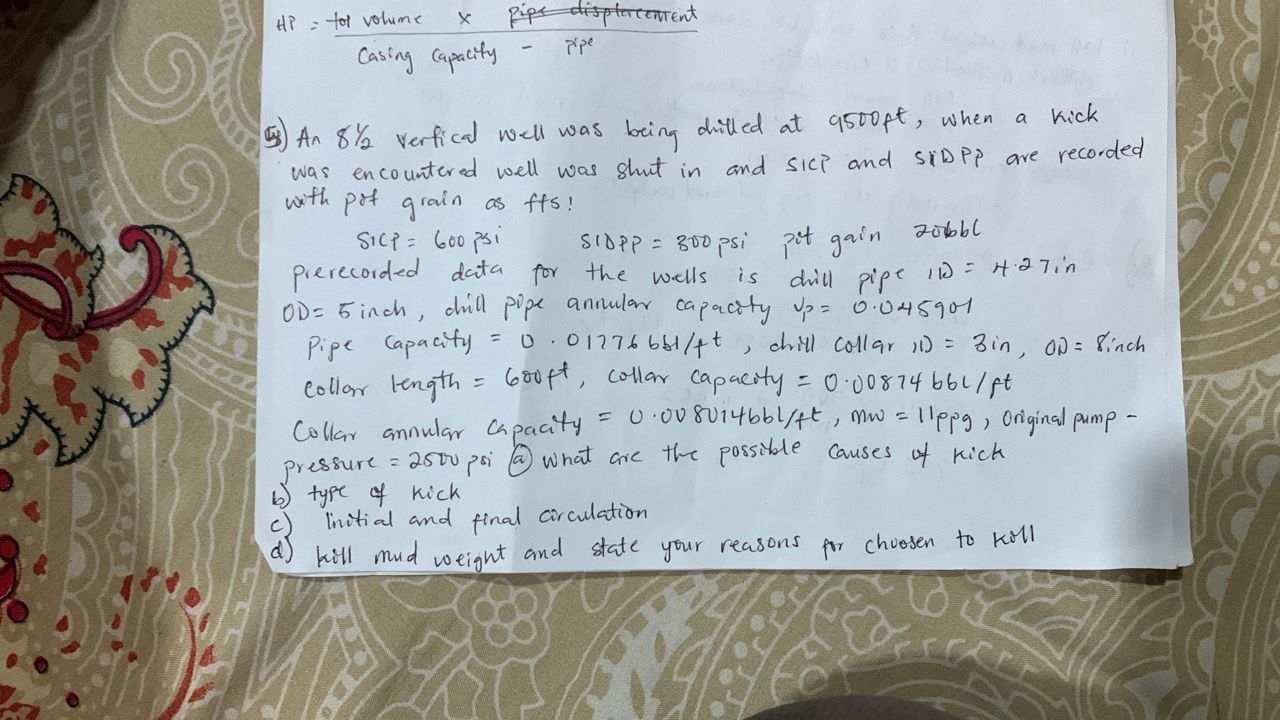 HP = tot volume x pipe displacement
Casing Capacity - pipe
5) An 8 1/2 vertical well was being drilled at 9500ft, when a kick
was encountered well was shut in and SICP and SIDPP are recorded
with pot grain as ffs!
SICP = 600 psi SIDPP = 300 psi pit gain 20bbl
prerecorded data for the wells is drill pipe ID = 4.27in
OD= 5 inch, drill pipe annular capacity Vp = 0.045901
Pipe capacity = 0.01776 bbl/ft, drill collar ID = 3in, OD = 8inch
Collar length = 600ft, collar capacity = 0.00874 bbl/ft
Collar annular capacity = 0.008014bbl/ft, mw = 11ppg, Original pump -
pressure = 2500 psi (a) what are the possible causes of kick
b) type of kick
c) initial and final circulation
d) kill mud weight and state your reasons for choosen to kill